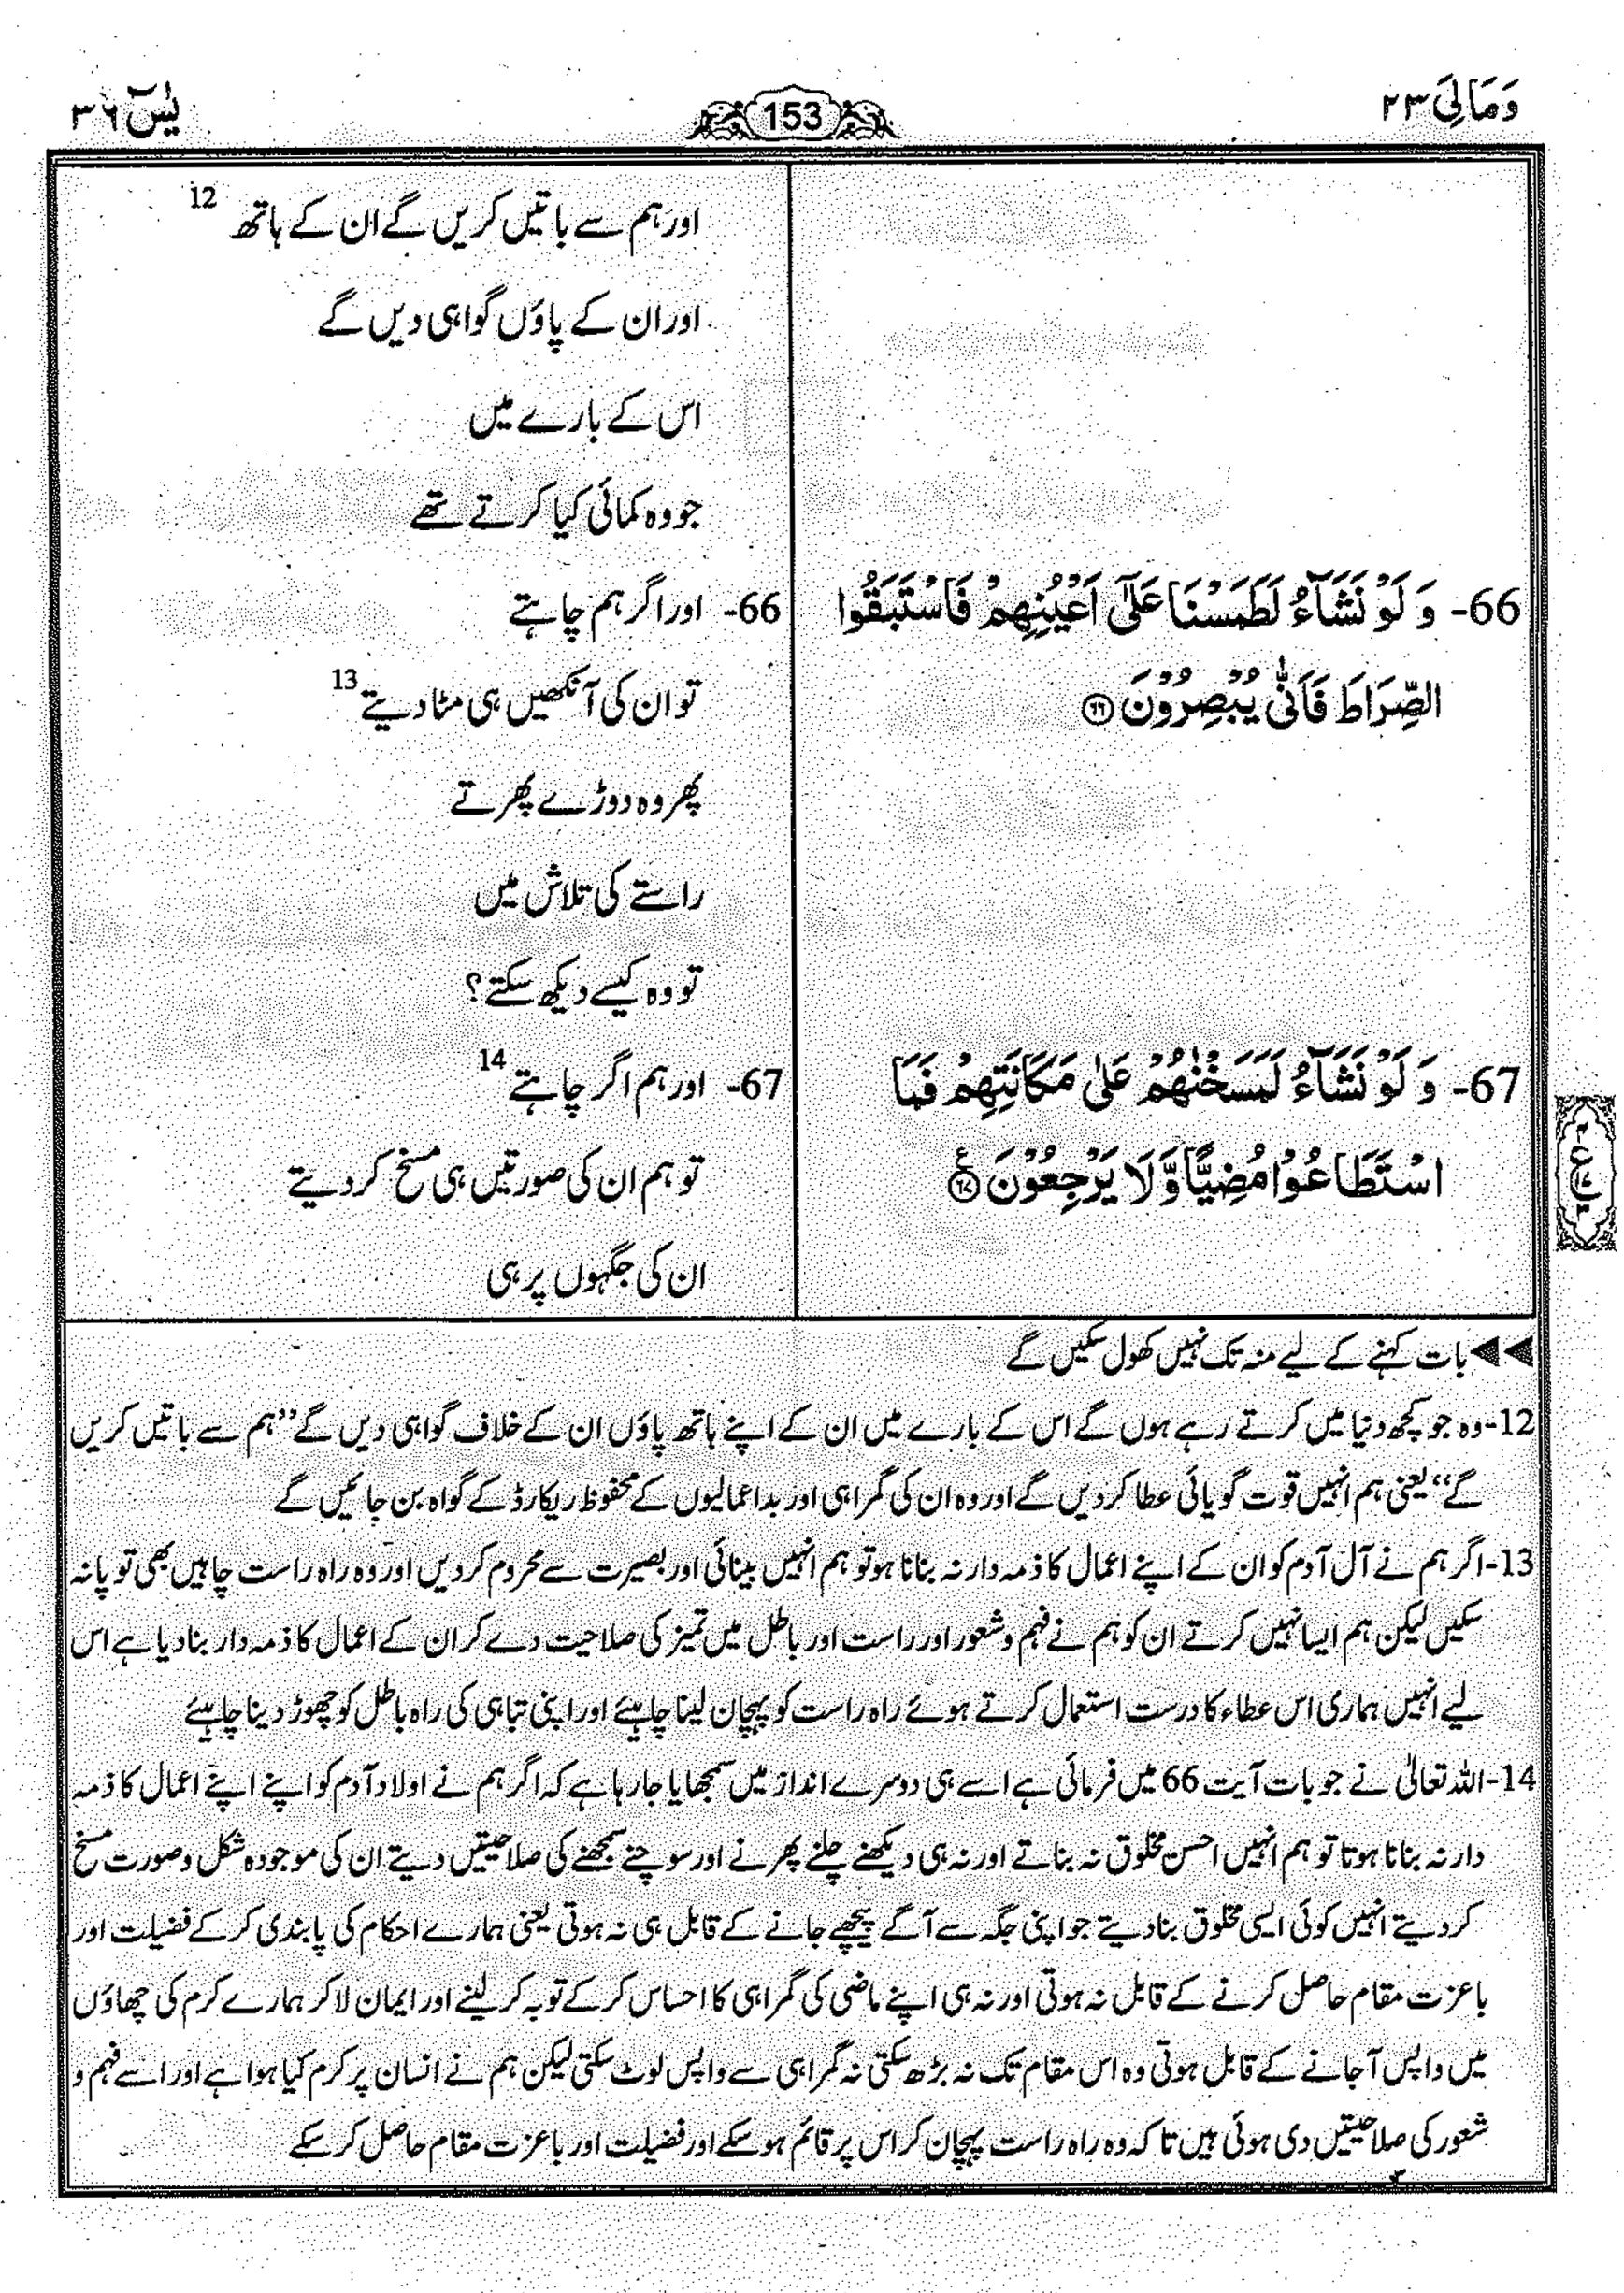 وَمَالِیَ ۲۳
153
یٰسٓ ۳۶
66- وَ لَوْ نَشَآءُ لَطَمَسْنَا عَلٰۤی اَعْیُنِهِمْ فَاسْتَبَقُوا
الصِّرَاطَ فَاَنّٰی یُبْصِرُوْنَ ﴿۶۶﴾
67- وَ لَوْ نَشَآءُ لَمَسَخْنٰهُمْ عَلٰی مَكَانَتِهِمْ فَمَا
اسْتَطَاعُوْا مُضِیًّا وَّ لَا یَرْجِعُوْنَ ﴿۶۷﴾
اور ہم سے باتیں کریں گے ان کے ہاتھ 12
اور ان کے پاؤں گواہی دیں گے
اس کے بارے میں
جو وہ کمائی کیا کرتے تھے
66- اور اگر ہم چاہتے
تو ان کی آنکھیں ہی مٹا دیتے 13
پھر وہ دوڑے پھرتے
راستے کی تلاش میں
تو وہ کیسے دیکھ سکتے؟
67- اور ہم اگر چاہتے 14
تو ہم ان کی صورتیں ہی مسخ کر دیتے
ان کی جگہوں پر ہی
◀◀ بات کہنے کے لیے منہ تک نہیں کھول سکیں گے
12-وہ جو کچھ دنیا میں کرتے رہے ہوں گے اس کے بارے میں ان کے اپنے ہاتھ پاؤں ان کے خلاف گواہی دیں گے ”ہم سے باتیں کریں
گے“ یعنی ہم انہیں قوت گویائی عطا کر دیں گے اور وہ ان کی گمراہی اور بداعمالیوں کے محفوظ ریکارڈ کے گواہ بن جائیں گے
13-اگر ہم نے آل آدم کو ان کے اپنے اعمال کا ذمہ دار نہ بنانا ہو تو ہم انہیں بینائی اور بصیرت سے محروم کر دیں اور وہ راہ راست چاہیں بھی تو پا نہ
سکیں لیکن ہم ایسا نہیں کرتے ان کو ہم نے فہم و شعور اور راست اور باطل میں تمیز کی صلاحیت دے کر ان کے اعمال کا ذمہ دار بنا دیا ہے اس
لیے انہیں ہماری اس عطاء کا درست استعمال کرتے ہوئے راہ راست کو پہچان لینا چاہیئے اور اپنی تباہی کی راہ باطل کو چھوڑ دینا چاہیئے
14-اللہ تعالیٰ نے جو بات آیت 66 میں فرمائی ہے اسے ہی دوسرے انداز میں سمجھایا جا رہا ہے کہ اگر ہم نے اولاد آدم کو اپنے اپنے اعمال کا ذمہ
دار نہ بنانا ہوتا تو ہم انہیں احسن مخلوق نہ بناتے اور نہ ہی دیکھنے چلنے پھرنے اور سوچنے سمجھنے کی صلاحیتیں دیتے ان کی موجودہ شکل و صورت مسخ
کر دیتے انہیں کوئی ایسی مخلوق بنا دیتے جو اپنی جگہ سے آگے پیچھے جانے کے قابل ہی نہ ہوتی یعنی ہمارے احکام کی پابندی کر کے فضیلت اور
باعزت مقام حاصل کرنے کے قابل نہ ہوتی اور نہ ہی اپنے ماضی کی گمراہی کا احساس کر کے توبہ کر لینے اور ایمان لا کر ہمارے کرم کی چھاؤں
میں واپس آ جانے کے قابل ہوتی وہ اس مقام تک نہ بڑھ سکتی نہ گمراہی سے واپس لوٹ سکتی لیکن ہم نے انسان پر کرم کیا ہوا ہے اور اسے فہم و
شعور کی صلاحیتیں دی ہوئی ہیں تا کہ وہ راہ راست پہچان کر اس پر قائم ہو سکے اور فضیلت اور باعزت مقام حاصل کر سکے